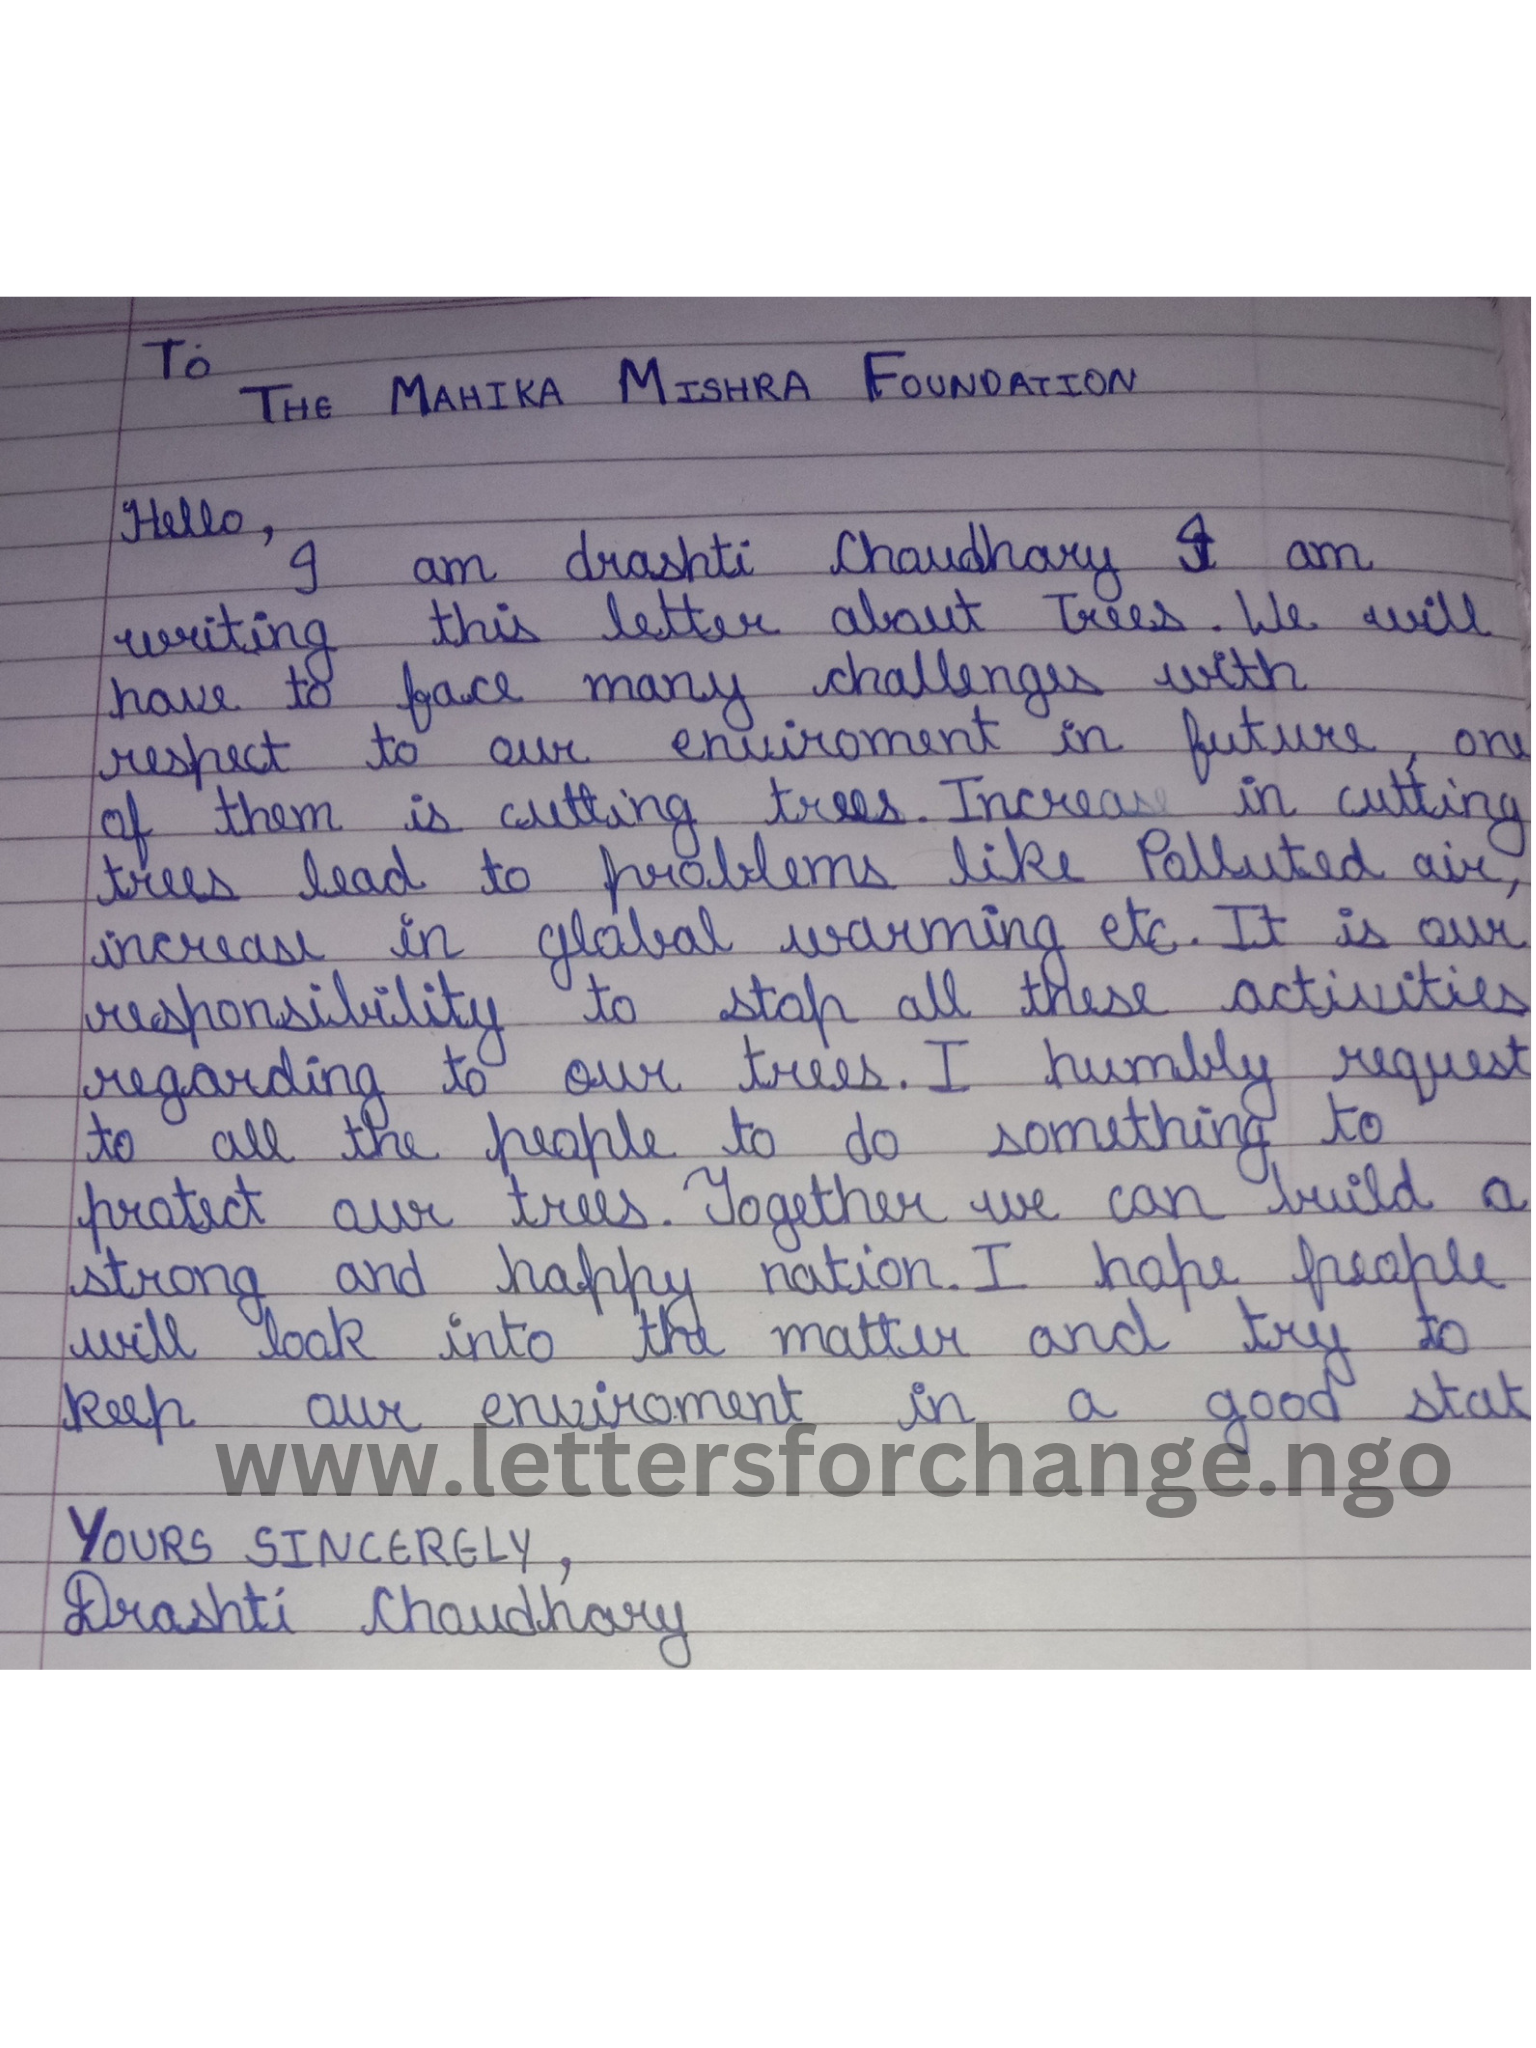 To
THE MAHIKA MISHRA FOUNDATION
Hello,
I am drashti Chaudhary I am
writing this letter about Trees. We will
have to face many challenges with
respect to our enviroment in future, one
of them is cutting trees. Increase in cutting
trees lead to problems like Polluted air,
increase in global warming etc. It is our
responsibility to stop all these activities
regarding to our trees. I humbly request
to all the people to do something to
protect our trees. Together we can build a
strong and happy nation. I hope people
will look into the matter and try to
keep our enviroment in a good stat
www.lettersforchange.ngo
YOURS SINCERELY,
Drashti Chaudhary